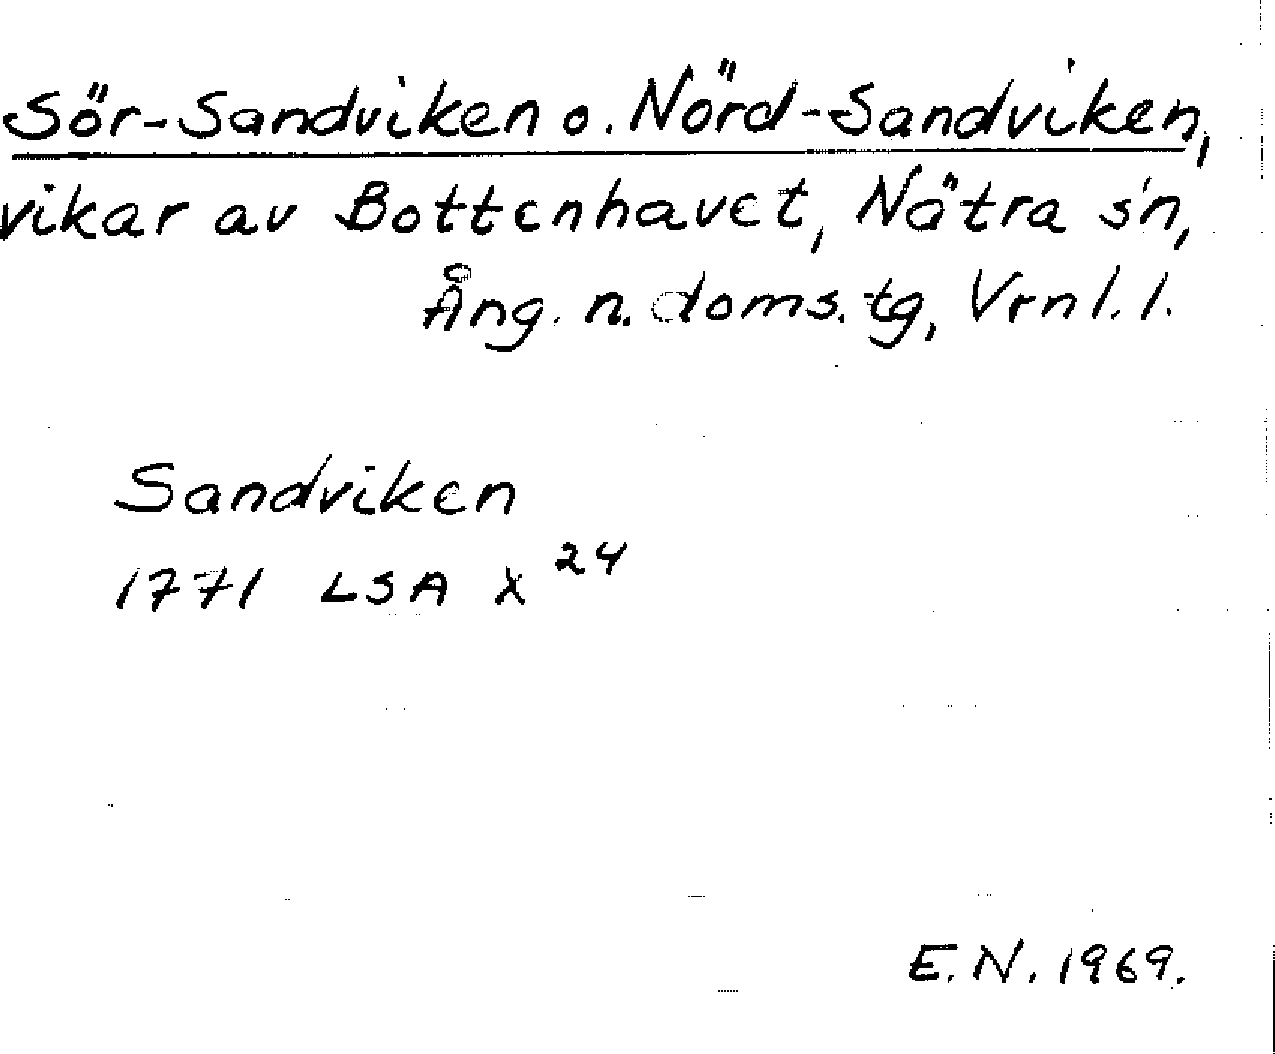 Sör-Sandviken o. Nörd-Sandviken,
vikar av Bottenhavet, Nätra sn,
Ång. n. doms. tg, Vrnl. l.
Sandviken
1771 LSA X 24
E. N. 1969.